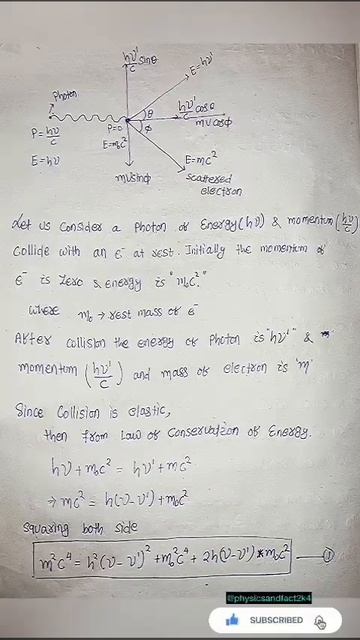 hν'/c sinθ
E=hν'
Photon
hν'/c cosθ
P=hν/c
P=0
θ
mυcosφ
φ
E=hν
E=m₀c²
mυsinφ
E=mc²
scattered
electron
Let us consider a Photon of Energy(hν) & momentum(hν/c)
Collide with an e⁻ at rest. Initially the momentum of
e⁻ is zero & energy is "m₀c²."
where m₀ → rest mass of e⁻
After collision the energy of Photon is "hν'" &
momentum (hν'/c) and mass of electron is 'm'
Since Collision is elastic,
then from Law of Conservation of Energy.
hν + m₀c² = hν' + mc²
→ mc² = h(ν-ν') + m₀c²
squaring both side
m²c⁴ = h²(ν-ν')² + m₀²c⁴ + 2h(ν-ν')*m₀c² — ①
@physicsandfact2k4
SUBSCRIBED